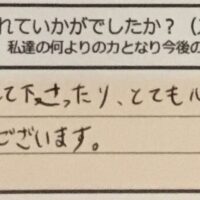 れていかがでしたか？（
私達の何よりの力となり今後の
て下さったり、とても
ございます。